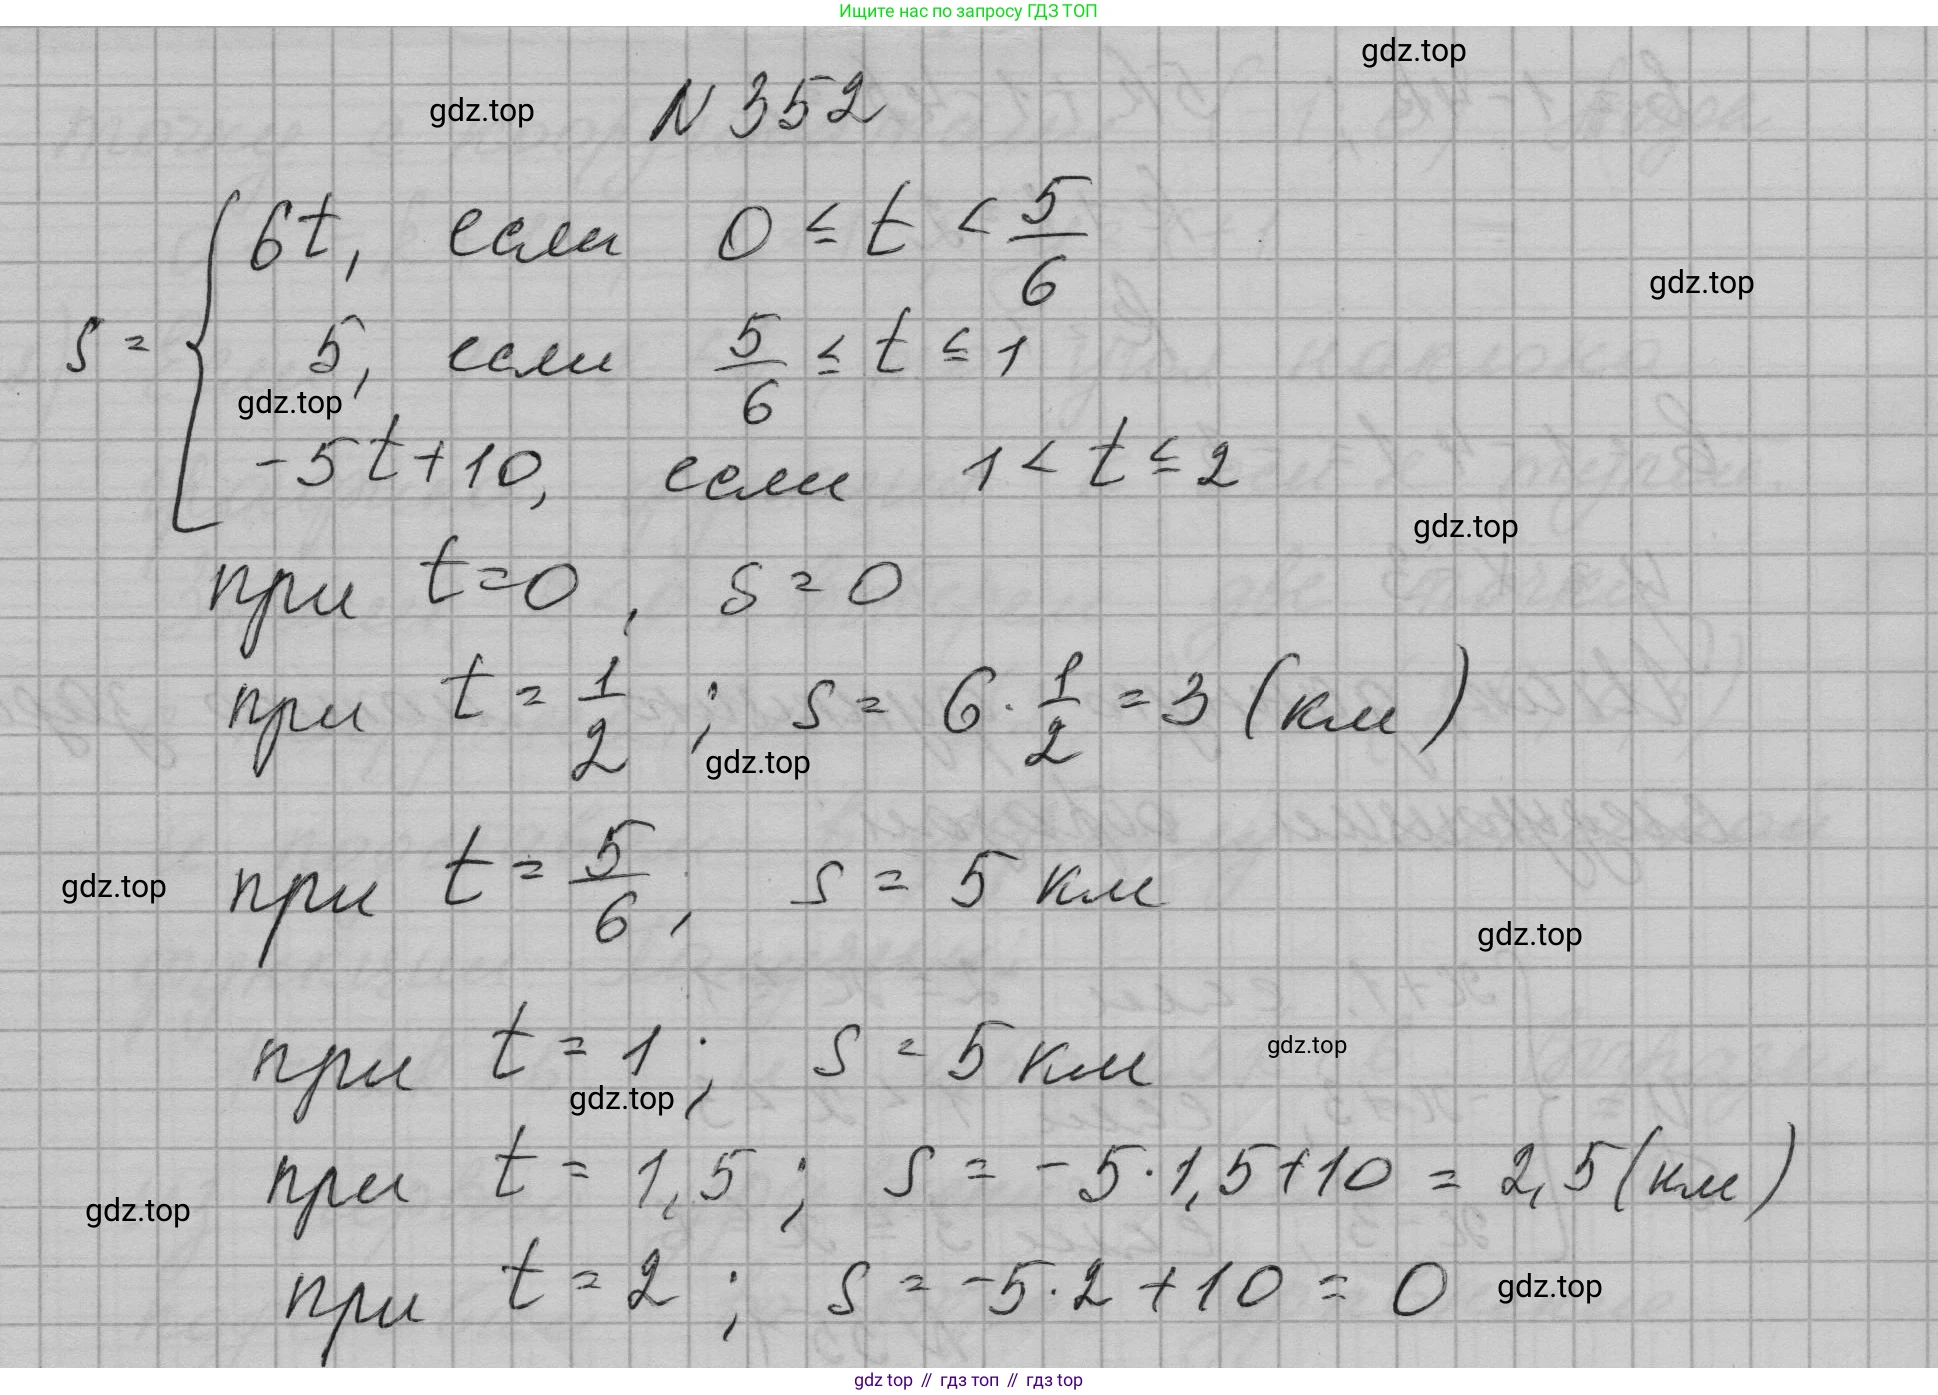 Ищите нас по запросу ГДЗ ТОП
gdz.top
gdz.top N 352
6t, если 0 ≤ t < 5/6
gdz.top
s = { 5, если 5/6 ≤ t ≤ 1
gdz.top
-5t+10, если 1 < t ≤ 2
gdz.top
при t=0, s=0
при t = 1/2; s = 6 · 1/2 = 3 (км)
gdz.top
gdz.top при t = 5/6; s = 5 км
gdz.top
при t = 1; s = 5 км gdz.top
gdz.top
при t = 1,5; s = -5·1,5+10 = 2,5 (км)
gdz.top
при t = 2; s = -5·2+10 = 0 gdz.top
gdz top // гдз топ // гдз top